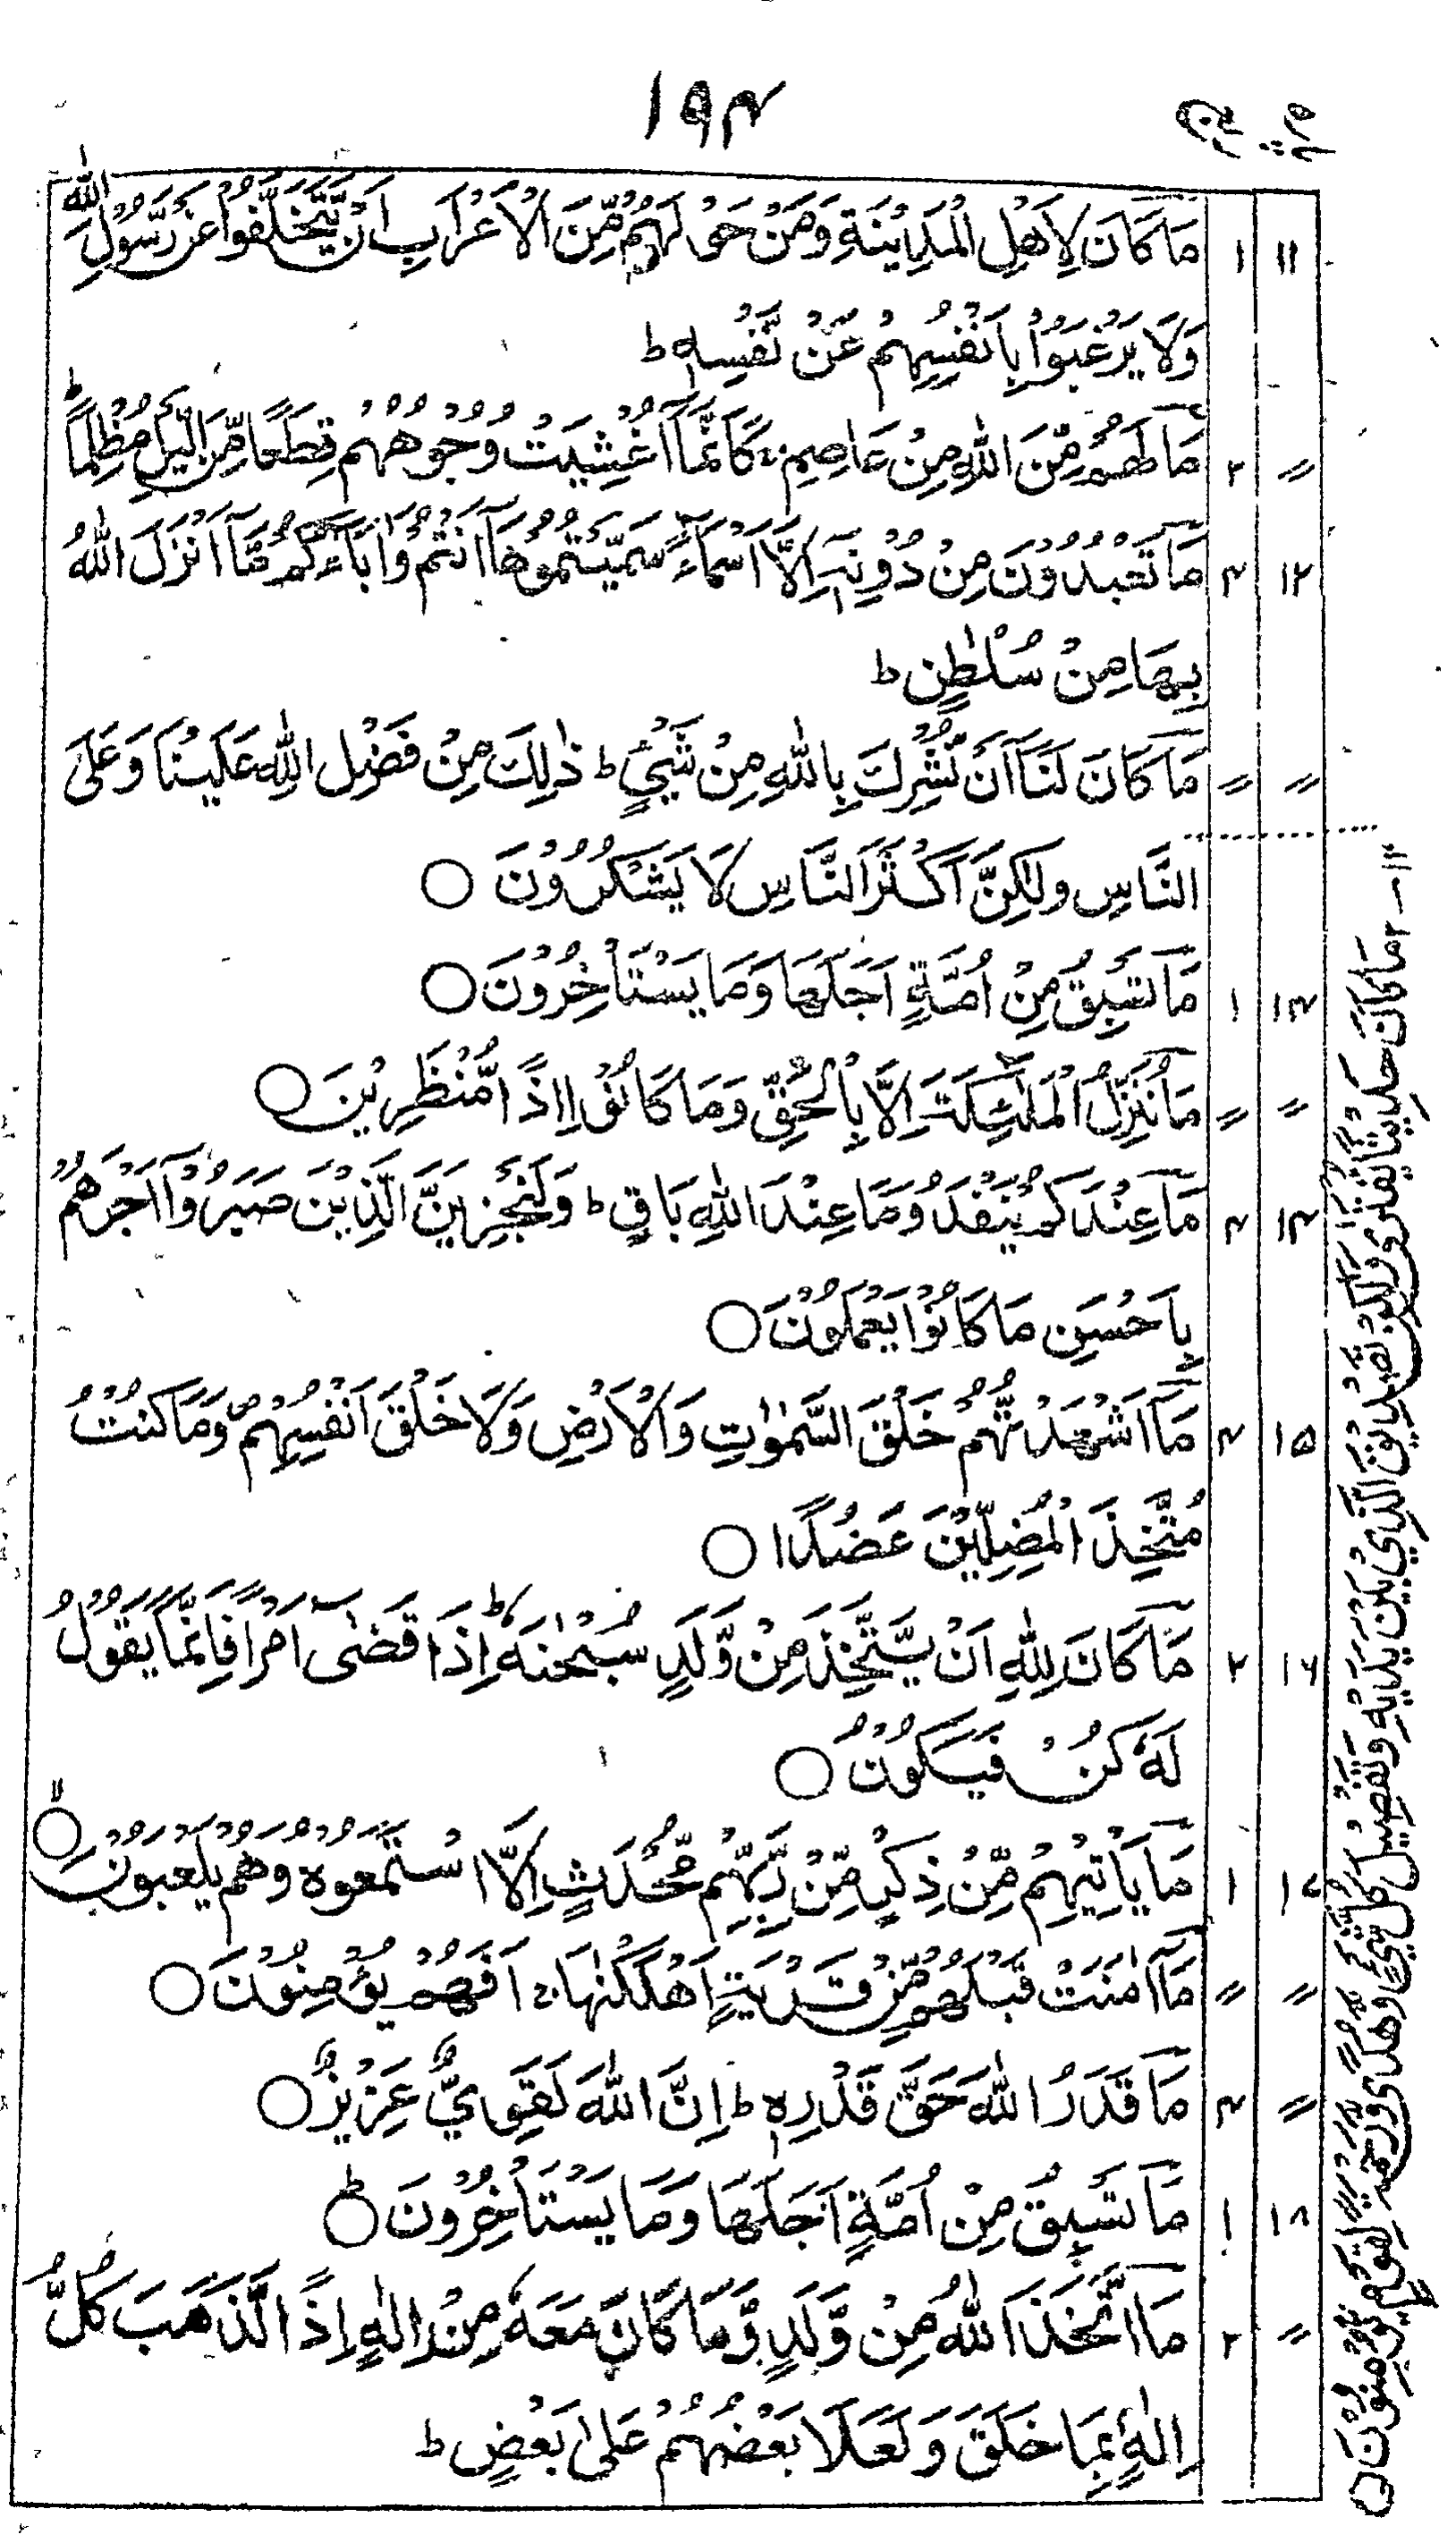 ۱۹۴
پارہ ربع
۱۱ ۱ مَا كَانَ لِاَهْلِ الْمَدِيْنَةِ وَمَنْ حَوْلَهُمْ مِّنَ الْاَعْرَابِ اَنْ يَّتَخَلَّفُوْا عَنْ رَّسُوْلِ اللّٰهِ
وَلَا يَرْغَبُوْا بِاَنْفُسِهِمْ عَنْ نَّفْسِهٖ ط
〃 ۲ مَا لَهُمْ مِّنَ اللّٰهِ مِنْ عَاصِمٍ ج كَاَنَّمَآ اُغْشِيَتْ وُجُوْهُهُمْ قِطَعًا مِّنَ الَّيْلِ مُظْلِمًا ط
۱۲ ۴ مَا تَعْبُدُوْنَ مِنْ دُوْنِهٖٓ اِلَّآ اَسْمَآءً سَمَّيْتُمُوْهَآ اَنْتُمْ وَاٰبَآؤُكُمْ مَّآ اَنْزَلَ اللّٰهُ
بِهَا مِنْ سُلْطٰنٍ ط
〃 〃 مَا كَانَ لَنَآ اَنْ نُّشْرِكَ بِاللّٰهِ مِنْ شَيْءٍ ط ذٰلِكَ مِنْ فَضْلِ اللّٰهِ عَلَيْنَا وَعَلَى
النَّاسِ وَلٰكِنَّ اَكْثَرَ النَّاسِ لَا يَشْكُرُوْنَ ○
۱۴ ۱ مَا تَسْبِقُ مِنْ اُمَّةٍ اَجَلَهَا وَمَا يَسْتَاْخِرُوْنَ ○
〃 〃 مَا نُنَزِّلُ الْمَلٰٓئِكَةَ اِلَّا بِالْحَقِّ وَمَا كَانُوْٓا اِذًا مُّنْظَرِيْنَ ○
۱۴ ۴ مَا عِنْدَكُمْ يَنْفَدُ وَمَا عِنْدَ اللّٰهِ بَاقٍ ط وَلَنَجْزِيَنَّ الَّذِيْنَ صَبَرُوْٓا اَجْرَهُمْ
بِاَحْسَنِ مَا كَانُوْا يَعْمَلُوْنَ ○
۱۵ ۴ مَآ اَشْهَدْتُّهُمْ خَلْقَ السَّمٰوٰتِ وَالْاَرْضِ وَلَا خَلْقَ اَنْفُسِهِمْ ص وَمَا كُنْتُ
مُتَّخِذَ الْمُضِلِّيْنَ عَضُدًا ○
۱۶ ۲ مَا كَانَ لِلّٰهِ اَنْ يَّتَّخِذَ مِنْ وَّلَدٍ سُبْحٰنَهٗ ط اِذَا قَضٰٓى اَمْرًا فَاِنَّمَا يَقُوْلُ
لَهٗ كُنْ فَيَكُوْنُ ○
۱۷ ۱ مَا يَاْتِيْهِمْ مِّنْ ذِكْرٍ مِّنْ رَّبِّهِمْ مُّحْدَثٍ اِلَّا اسْتَمَعُوْهُ وَهُمْ يَلْعَبُوْنَ ○ لا
〃 〃 مَآ اٰمَنَتْ قَبْلَهُمْ مِّنْ قَرْيَةٍ اَهْلَكْنٰهَا ج اَفَهُمْ يُؤْمِنُوْنَ ○
〃 ۴ مَا قَدَرُوا اللّٰهَ حَقَّ قَدْرِهٖ ط اِنَّ اللّٰهَ لَقَوِيٌّ عَزِيْزٌ ○
۱۸ ۱ مَا تَسْبِقُ مِنْ اُمَّةٍ اَجَلَهَا وَمَا يَسْتَاْخِرُوْنَ ○ ط
〃 ۲ مَا اتَّخَذَ اللّٰهُ مِنْ وَّلَدٍ وَّمَا كَانَ مَعَهٗ مِنْ اِلٰهٍ اِذًا لَّذَهَبَ كُلُّ
اِلٰهٍ بِمَا خَلَقَ وَلَعَلَا بَعْضُهُمْ عَلٰى بَعْضٍ ط
۱۳ — ۲ مَا كَانَ حَدِيْثًا يُّفْتَرٰى وَلٰكِنْ تَصْدِيْقَ الَّذِيْ بَيْنَ يَدَيْهِ وَتَفْصِيْلَ كُلِّ شَيْءٍ وَّهُدًى وَّرَحْمَةً لِّقَوْمٍ يُّؤْمِنُوْنَ ○